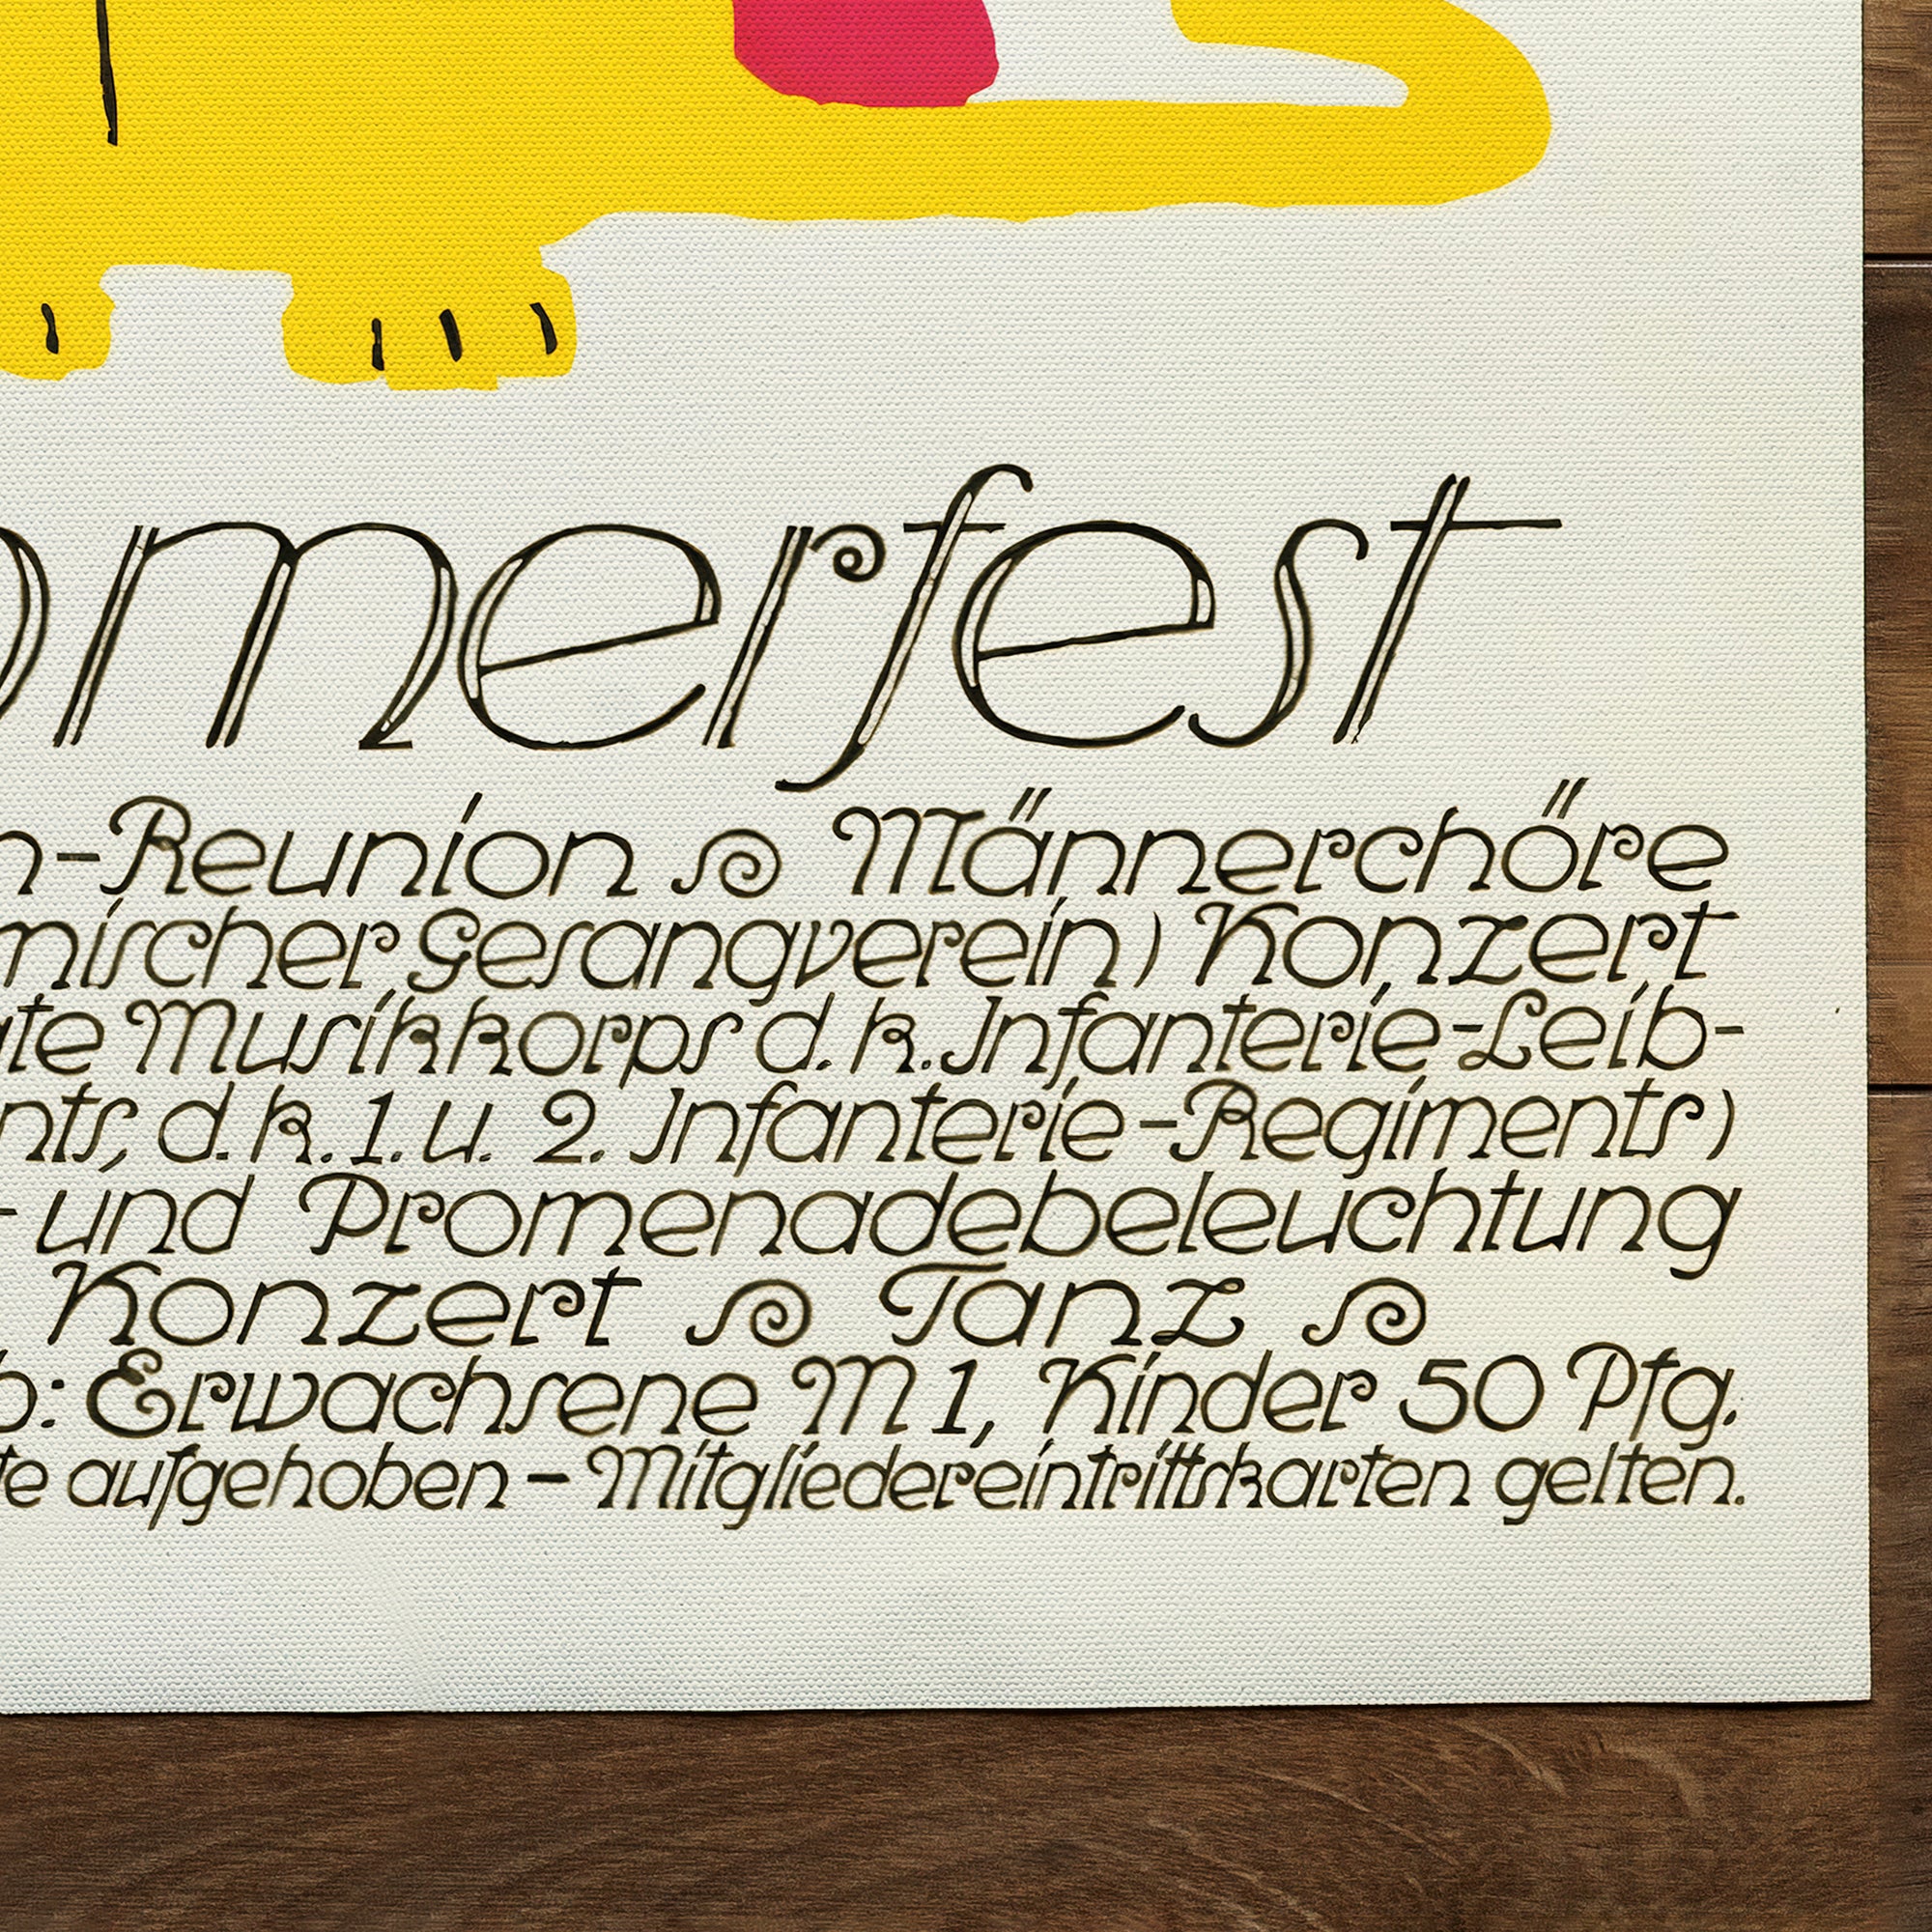 omerfest
n-Reunion Männerchöre
mischer Gesangverein) Konzert
te Musikkorps d. k. Infanterie-Leib-
nts, d. k. 1. u. 2. Infanterie-Regiments)
- und Promenadebeleuchtung
Konzert Tanz
b: Erwachsene M 1, Kinder 50 Pfg.
te aufgehoben - Mitgliedereintrittskarten gelten.